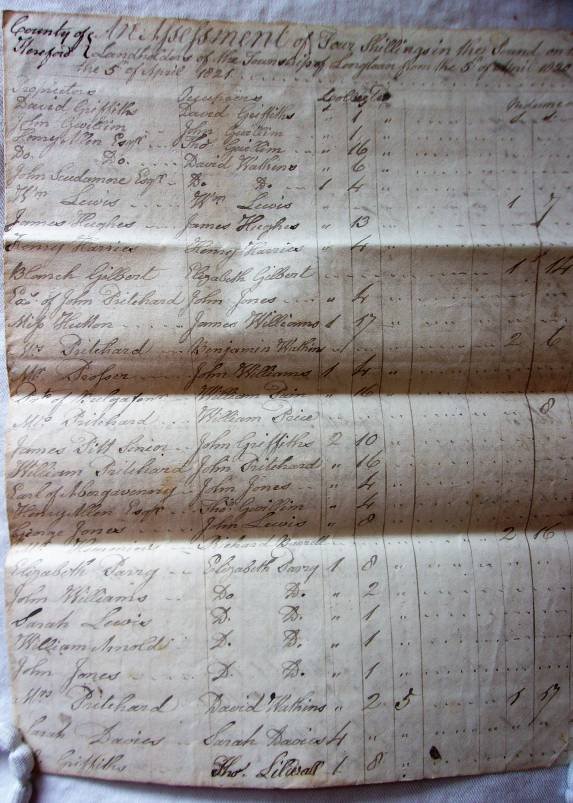 County of Hereford An Assessment of Four Shillings in the Pound on
Landholders of the Township of Longtown from the 5th of April 1820
the 5th of April 1821
Propietors Occupiers Collected
David Griffiths David Griffiths " 1 "
John Gwillim John Gwillim " 1 "
Henry Allen Esqr Thos Gwillim " 16 "
Do. Do. David Watkins " 6 "
John Scudamore Esqr D. D. 1 4 "
Wm Lewis Wm Lewis 1 7
James Hughes James Hughes " 13 "
Henry Harries Henry Harries " 4 "
Blanch Gilbert Elizabeth Gilbert 1 14
Exs of John Pritchard John Jones " 4
Miss Hutton James Williams 1 17 "
Mrs Pritchard Benjamin Watkins 2 6
Mr Prosser John Williams 1 4 "
William Pain " 16 "
Mrs Pritchard William Price 8
James Pitt Senior John Griffiths 2 10
William Pritchard John Pritchard " 16 "
Earl of Abergavenny John Jones " 4 "
Henry Allen Esqr Thos Gwillim " 4 "
George Jones John Lewis " 8 "
Richard 2 16
Elizabeth Parry Elizabeth Parry 1 8 "
John Williams Do D. " 2 "
Sarah Lewis D. D. " 1 "
William Arnold D. D. " 1 "
John Jones D. D. " 1 "
Mrs Pritchard David Watkins " 2 5 1 17
Sarah Davies Sarah Davies 4 " "
Griffiths Thos. Lilwall 1 8 "